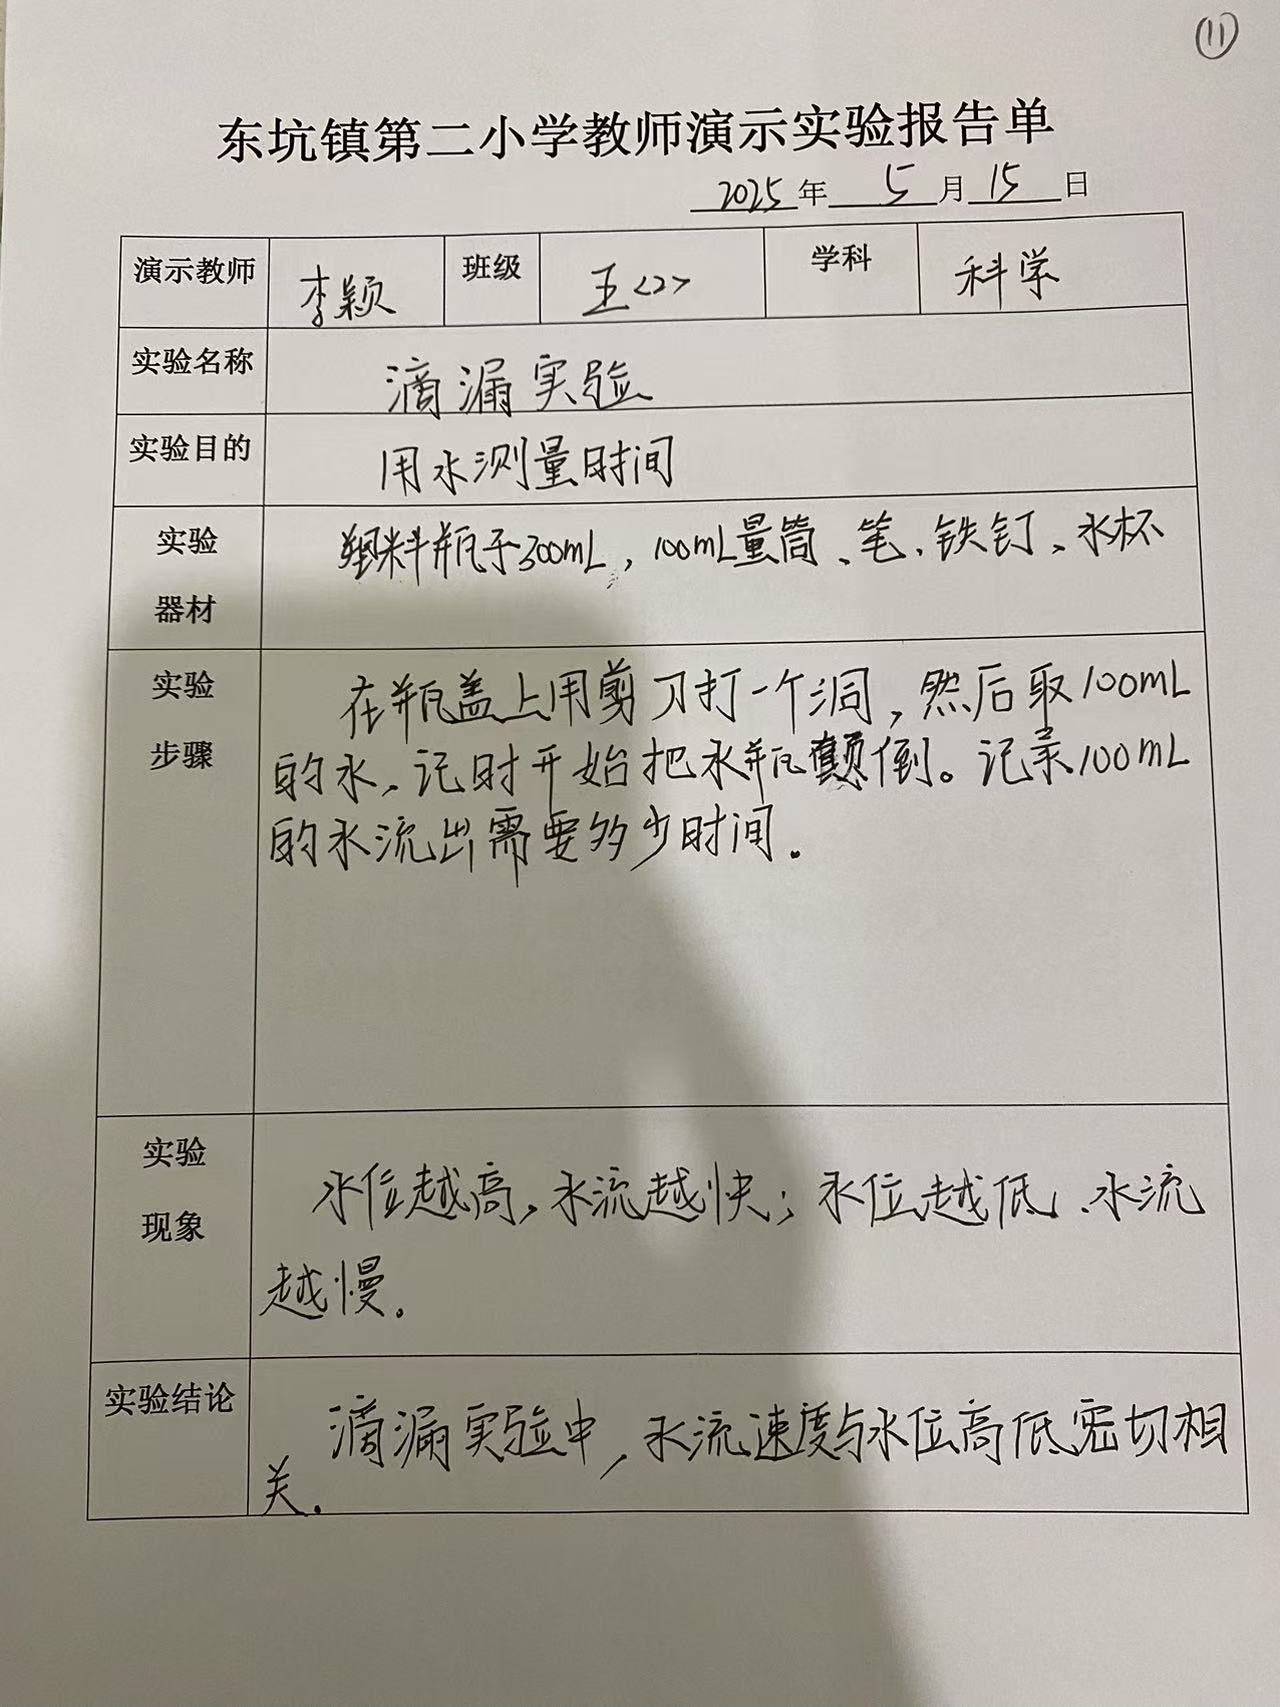 ⑪
东坑镇第二小学教师演示实验报告单
2025年 5月15日
演示教师 李颖 班级 五<2> 学科 科学
实验名称 滴漏实验
实验目的 用水测量时间
实验 塑料瓶子300mL，100mL量筒、笔、铁钉、水杯
器材
实验 在瓶盖上用剪刀打一个洞，然后取100mL
步骤 的水，记时开始把水瓶颠倒。记录100mL
的水流出需要多少时间.
实验 水位越高，水流越快；水位越低、水流
现象
越慢。
实验结论 滴漏实验中，水流速度与水位高低密切相
关.